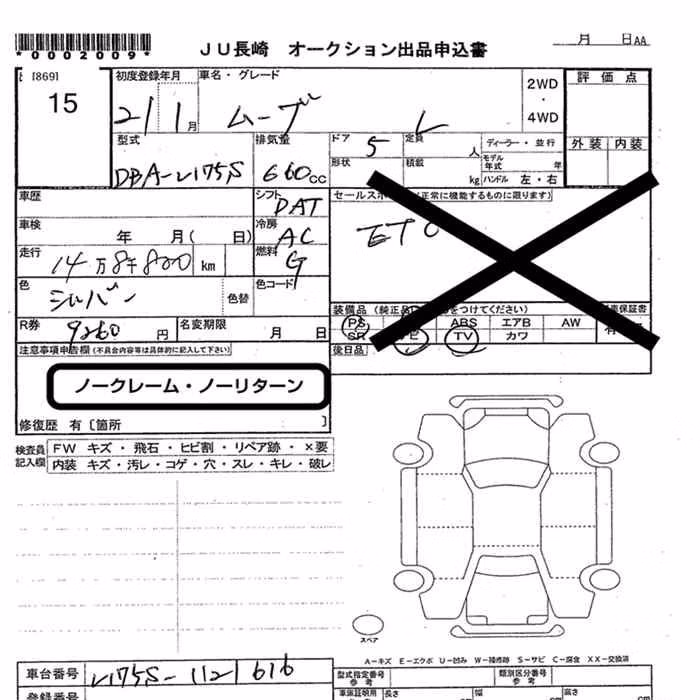 *0002009*
JU長崎 オークション出品申込書
月 日AA
[869]
15
初度登録年月
21/1月
車名・グレード
ムーブ L
2WD・4WD
評価点
外装 内装
型式
DBA-L175S
排気量
660cc
ドア
5
定員
人
ディーラー・並行
形状
積載
kg
モデル年式 年
ハンドル 左・右
車歴
シフト
DAT
車検
年 月( 日)
冷房
AC
走行
14万8千800km
燃料
G
色
シルバー
色替
色コード
R券
9260円
名変期限
月 日
(正常に機能するものに限ります)
装備品
PS
ABS エアB AW
SR
TV カワ
後日品
注意事項申告欄(不具合内容等は具体的に記入して下さい)
ノークレーム・ノーリターン
修復歴 有〔箇所 〕
検査員記入欄
FW キズ・飛石・ヒビ割・リペア跡・×要
内装 キズ・汚レ・コゲ・穴・スレ・キレ・破レ
スペア
A-キズ E-エクボ U-凹み W-補修跡 S-サビ C-腐食 XX-交換済
車台番号
L175S-1121616
型式指定番号
参考
類別区分番号
参考
登録番号
長さ
幅
高さ